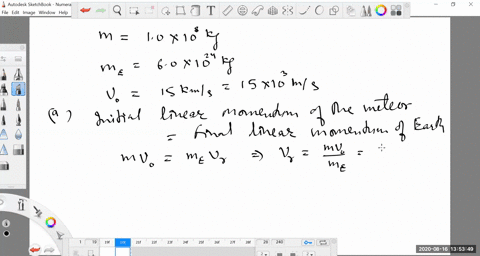 Autodesk SketchBook - Numera
m = 1.0 × 10⁸ kg
m_E = 6.0 × 10²⁴ kg
V₀ = 15 km/s = 15 × 10³ m/s
(a) Initial linear momentum of the meteor
= Final linear momentum of Earth
m V₀ = m_E V_r ⇒ V_r = mV₀/m_E =
2020-08-16 13:53:49